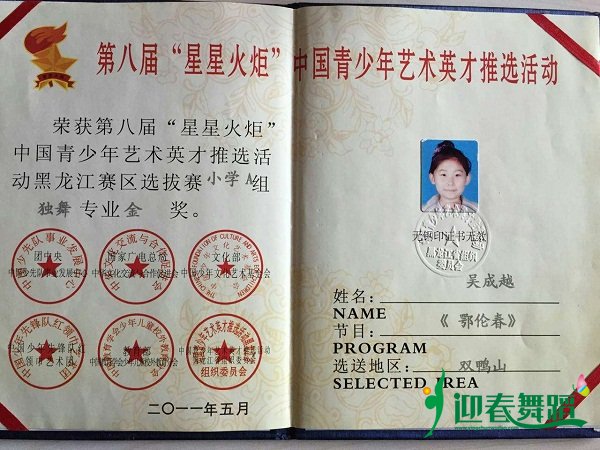 第八届“星星火炬”中国青少年艺术英才推选活动
荣获第八届“星星火炬”
中国青少年艺术英才推选活
动黑龙江赛区选拔赛小学A组
独舞专业金奖。
团中央
国家广电总局
文化部
中国少先队事业发展中心
中国少年文化艺术基金会
教育部
组织委员会
二〇一一年五月
无钢印证书无效
吴成越
姓名：
NAME
《鄂伦春》
节目：
PROGRAM
双鸭山
选送地区：
SELECTED AREA
迎春舞蹈